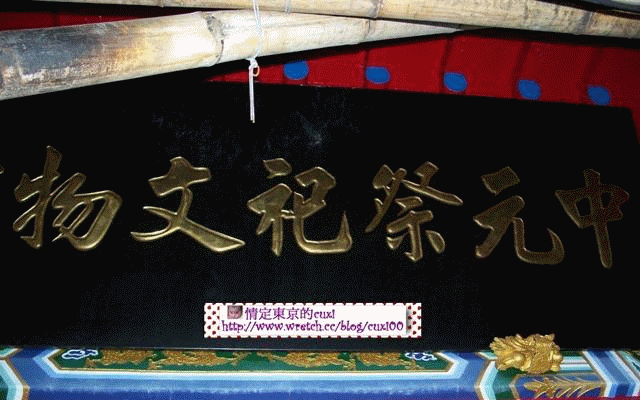 中元祭祀文物
情定東京的cuxl
http://www.wretch.cc/blog/cuxl00